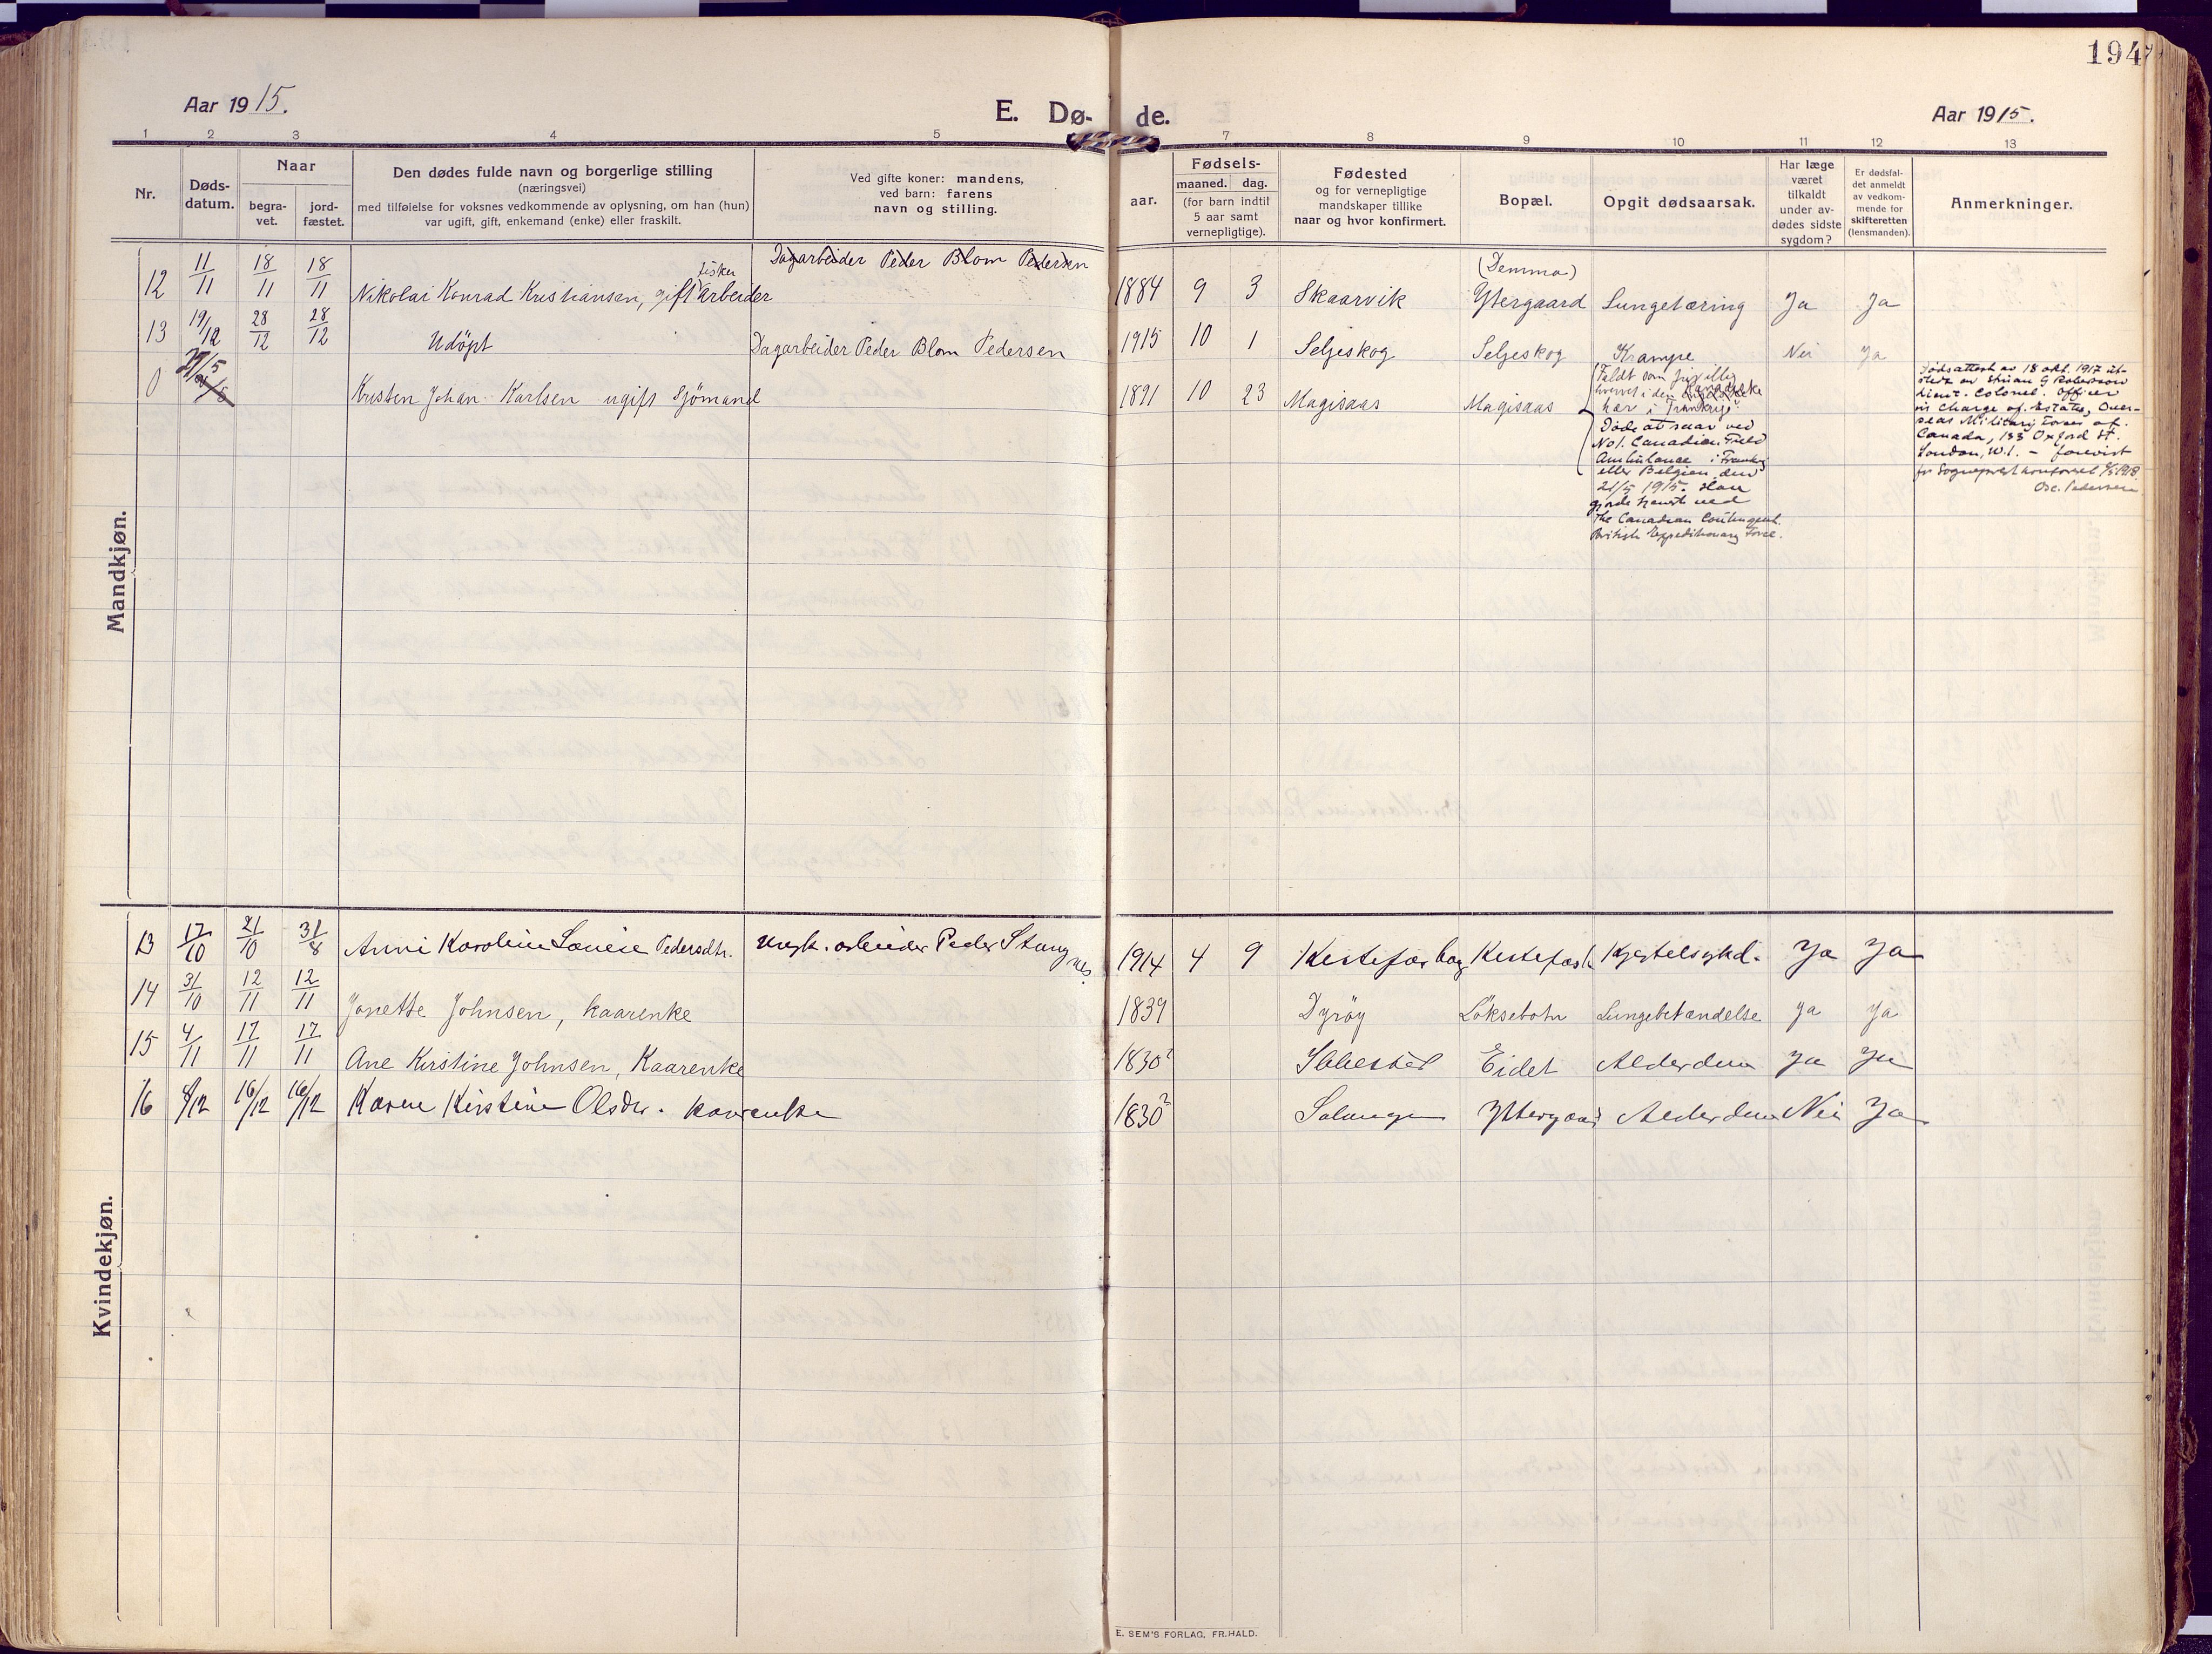 194
Aar 1915.
E. Dø- de.
Aar 1915.
1 2 3 4 5 7 8 9 10 11 12 13
Nr.
Døds-
datum.
Naar
begra-
vet.
jord-
fæstet.
Den dødes fulde navn og borgerlige stilling
(næringsvei)
med tilføielse for voksnes vedkommende av oplysning, om han (hun)
var ugift, gift, enkemand (enke) eller fraskilt.
Ved gifte koner: mandens,
ved barn: farens
navn og stilling.
Fødsels-
aar.
maaned. dag.
(for barn indtil
5 aar samt
vernepligtige).
Fødested
og for vernepligtige
mandskaper tillike
naar og hvor konfirmert.
Bopæl.
Opgit dødsaarsak.
Har læge
været
tilkaldt
under av-
dødes sidste
sygdom?
Er dødsfal-
det anmeldt
av vedkom-
mende for
skifteretten
(lensmanden).
Anmerkninger.
Mandkjøn.
Dagarbeider Peder Blom Pedersen
12 11/11 18/11 18/11 Nikolai Konrad Kristiansen, gift fisker arbeider 1884 9 3 Skaarvik (Demma) Ytergaard Lungetæring Ja Ja
13 19/12 28/12 28/12 Udöpt Dagarbeider Peder Blom Pedersen 1915 10 1 Seljeskog Seljeskog Krampe Nei Ja
0 21/5 Kristen Johan Karlsen ugift Sjömand 1891 10 23 Magisaas Magisaas
Faldt som frivillig
hvervet i den
hær i Frankrige?
Döde at saar ved
No 1. Canadian Field
Ambulance i Frankrig
eller Belgien den
21/5 1915. Han
gjorde tjeneste ved
The Canadian Contingent.
British Expeditionary Force.
Dödsattest av 18 okt. 1917 ut-
stedt av G Roberson
Lieut. Colonel. Officer
in Charge of Estates, Over-
seas Military Forces of
Canada, 133 Oxford St.
London, W.1. - forevist
for Sogneprest
Osc. Pedersen
Kvindekjøn.
13 17/10 21/10 31/8 Anni Karoline Lovise Pedersdtr. arbeider Peder Stangnes. 1914 4 9 Kastefar Kjertelsykd. Ja Ja
14 31/10 12/11 12/11 Janette Johnsen, kaarenke 1839 Dyröy Löksebotn Lungebetændelse Ja Ja
15 4/11 17/11 17/11 Ane Kirstine Johnsen, Kaarenke 1830? Ibbestad Eidet Alderdom Ja Ja
16 4/12 16/12 16/12 Karen Kirstine Olsdtr. kaarenke 1830? Salangen Yttergaard Alderdom Nei Ja
E. SEM'S FORLAG, FR.HALD.